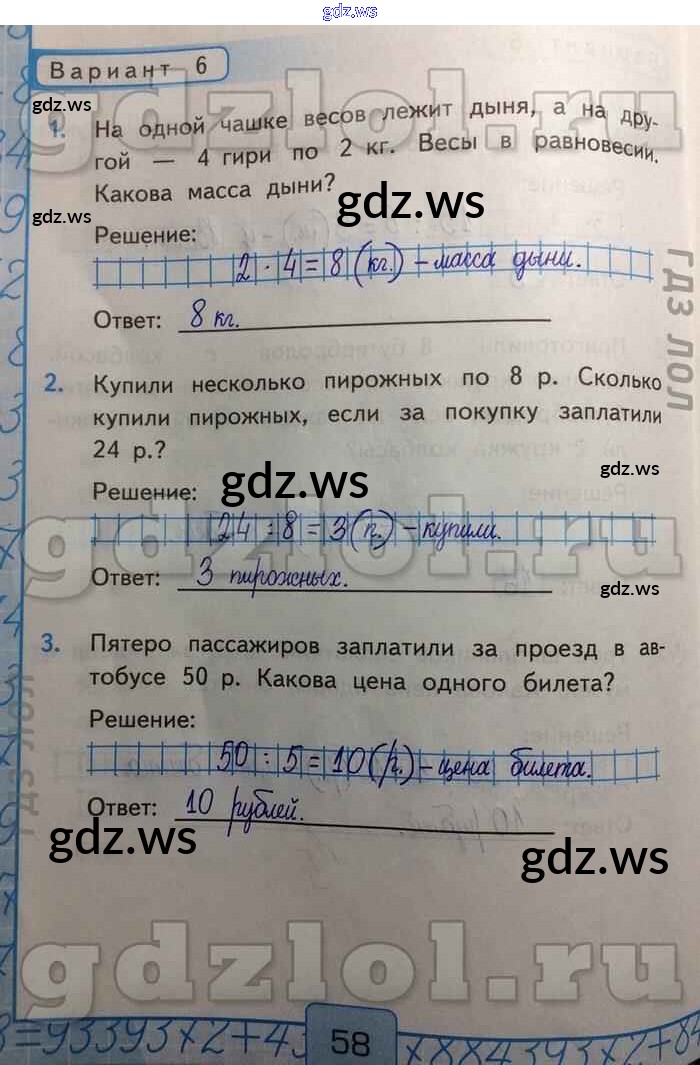 gdz.ws
Вариант 6
gdzlol.ru
gdz.ws
1. На одной чашке весов лежит дыня, а на дру-
гой — 4 гири по 2 кг. Весы в равновесии.
Какова масса дыни?
gdz.ws
gdz.ws
Решение:
2 · 4 = 8 (кг.) – масса дыни.
Ответ: 8 кг.
ГДЗ ЛОЛ
2. Купили несколько пирожных по 8 р. Сколько
купили пирожных, если за покупку заплатили
24 р.?
gdz.ws
gdz.ws
Решение:
24 : 8 = 3 (п.) – купили.
gdzlol.ru
Ответ: 3 пирожных.
gdz.ws
3. Пятеро пассажиров заплатили за проезд в ав-
тобусе 50 р. Какова цена одного билета?
Решение:
50 : 5 = 10 (р.) – цена билета.
ГДЗ ЛОЛ
Ответ: 10 рублей.
gdz.ws
gdz.ws
gdzlol.ru
58